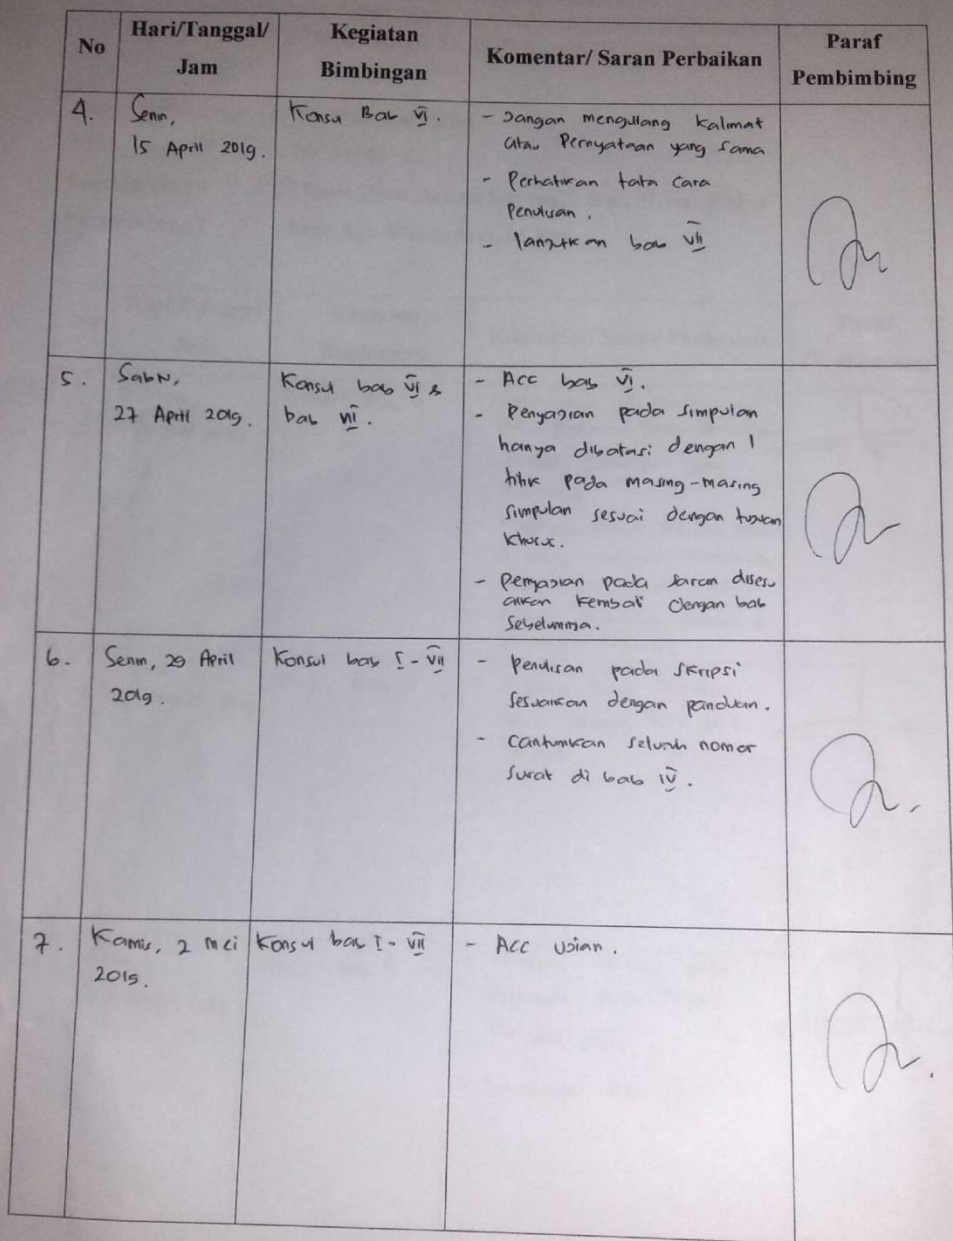 No
Hari/Tanggal/
Jam
Kegiatan
Bimbingan
Komentar/ Saran Perbaikan
Paraf
Pembimbing
4.
Senin,
15 April 2019.
Konsul Bab VI.
- Jangan mengulang kalimat
atau Pernyataan yang sama
- Perhatikan tata cara
Penulisan.
- lanjutkan bab VII
5.
Sabtu,
27 April 2019.
Konsul bab VI &
bab VII.
- Acc bab VI.
- Penyajian pada simpulan
hanya dibatasi dengan 1
titik pada masing-masing
simpulan sesuai dengan tujuan
khusus.
- Penyajian pada saran disesu
aikan kembali dengan bab
sebelumnya.
6.
Senin, 29 April
2019.
Konsul bab I - VII
- Penulisan pada skripsi
sesuaikan dengan panduan.
- Cantumkan seluruh nomor
surat di bab IV.
7.
Kamis, 2 mei
2019.
Konsul bab I - VII
- Acc Ujian.